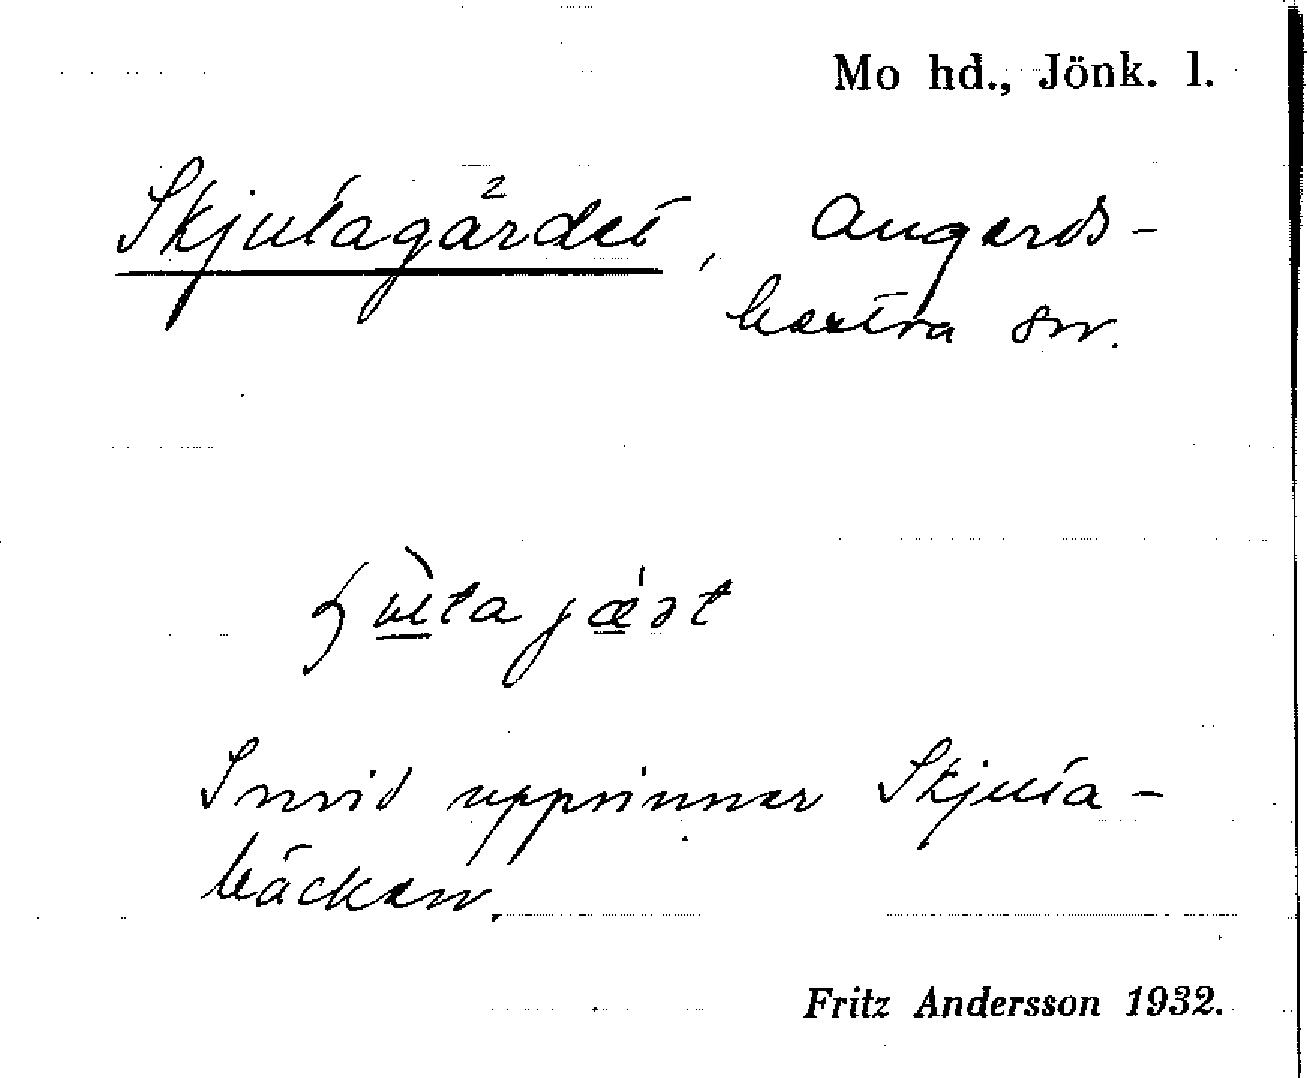 Mo hd., Jönk. l.
Skjutagärdet, Angerds-
bestra sn.
Invid upprinner Skjuta-
bäcken.
Fritz Andersson 1932.